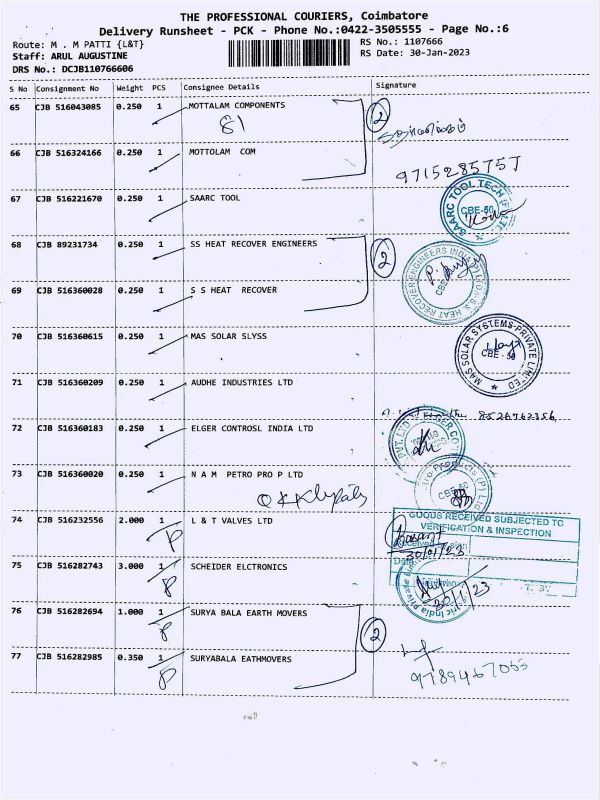 THE PROFESSIONAL COURIERS, Coimbatore
Delivery Runsheet - PCK - Phone No.:0422-3505555 - Page No.:6
Route: M . M PATTI {L&T}
RS No.: 1107666
Staff: ARUL AUGUSTINE
RS Date: 30-Jan-2023
DRS No.: DCJB110766606
S No Consignment No Weight PCS Consignee Details Signature
65 CJB 516043085 0.250 1 MOTTALAM COMPONENTS 2
81
66 CJB 516324166 0.250 1 MOTTOLAM COM
9715285757
67 CJB 516221670 0.250 1 SAARC TOOL
SAARC TOOL TECH
CBE-50
68 CJB 89231734 0.250 1 SS HEAT RECOVER ENGINEERS 2
69 CJB 516360028 0.250 1 S S HEAT RECOVER
70 CJB 516360615 0.250 1 MAS SOLAR SLYSS
MAS SOLAR SYSTEMS PRIVATE LIMITED
CBE - 50
71 CJB 516360209 0.250 1 AUDHE INDUSTRIES LTD
72 CJB 516360183 0.250 1 ELGER CONTROSL INDIA LTD
73 CJB 516360020 0.250 1 N A M PETRO PRO P LTD
74 CJB 516232556 2.000 1 L & T VALVES LTD
P
GOODS RECEIVED SUBJECTED TO
VERIFICATION & INSPECTION
30/01/23
75 CJB 516282743 3.000 1 SCHEIDER ELCTRONICS
P
30/1/23
76 CJB 516282694 1.000 1 SURYA BALA EARTH MOVERS 2
P
77 CJB 516282985 0.350 1 SURYABALA EATHMOVERS
P
9789467055